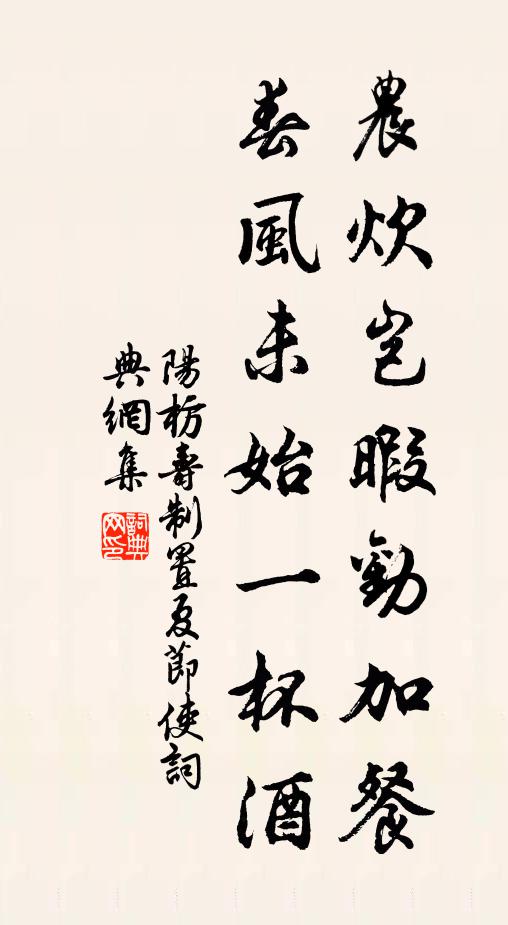 農炊豈暇勸加餐
春風未始一杯酒
陽枋壽制置夏節使詞
典網集
詞典网印